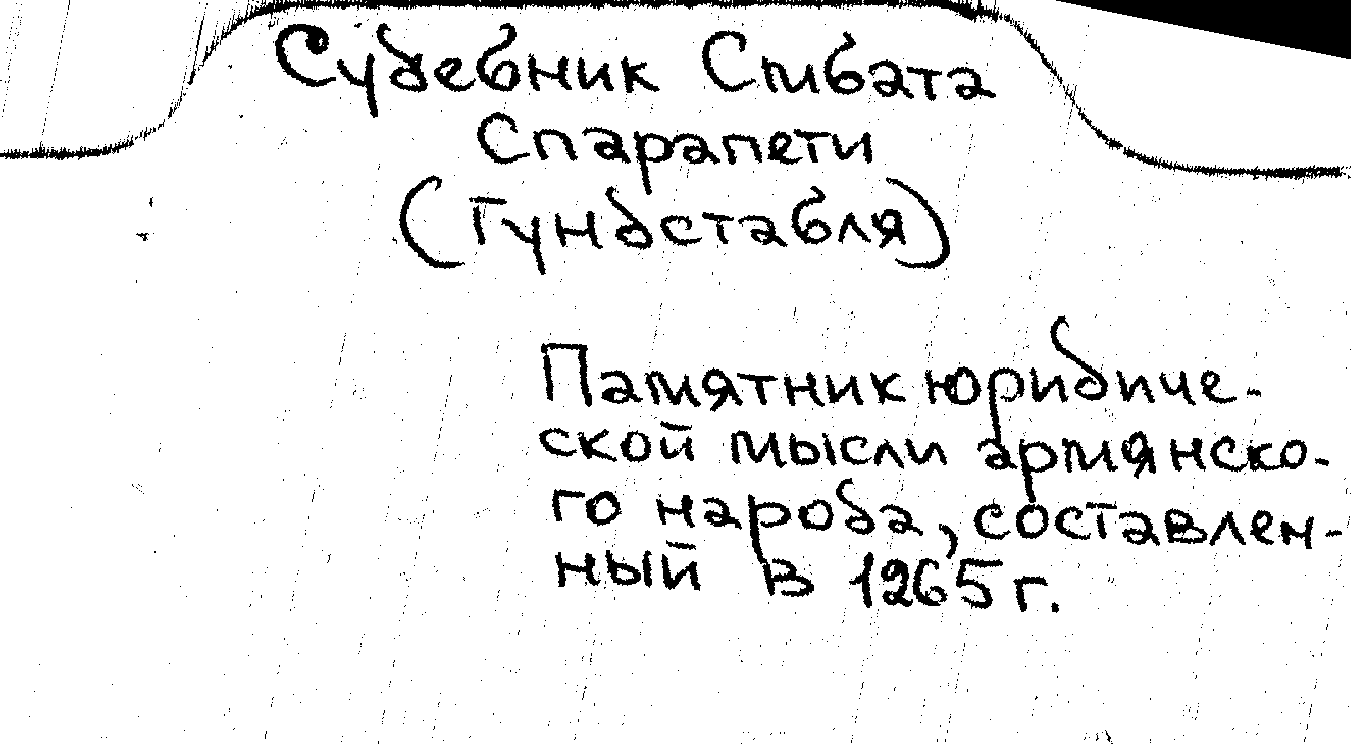 Судебник Смбата
Спарапети
(Гундстабля)
Памятник юридиче-
ской мысли армянско-
го народа, составлен-
ный в 1265 г.